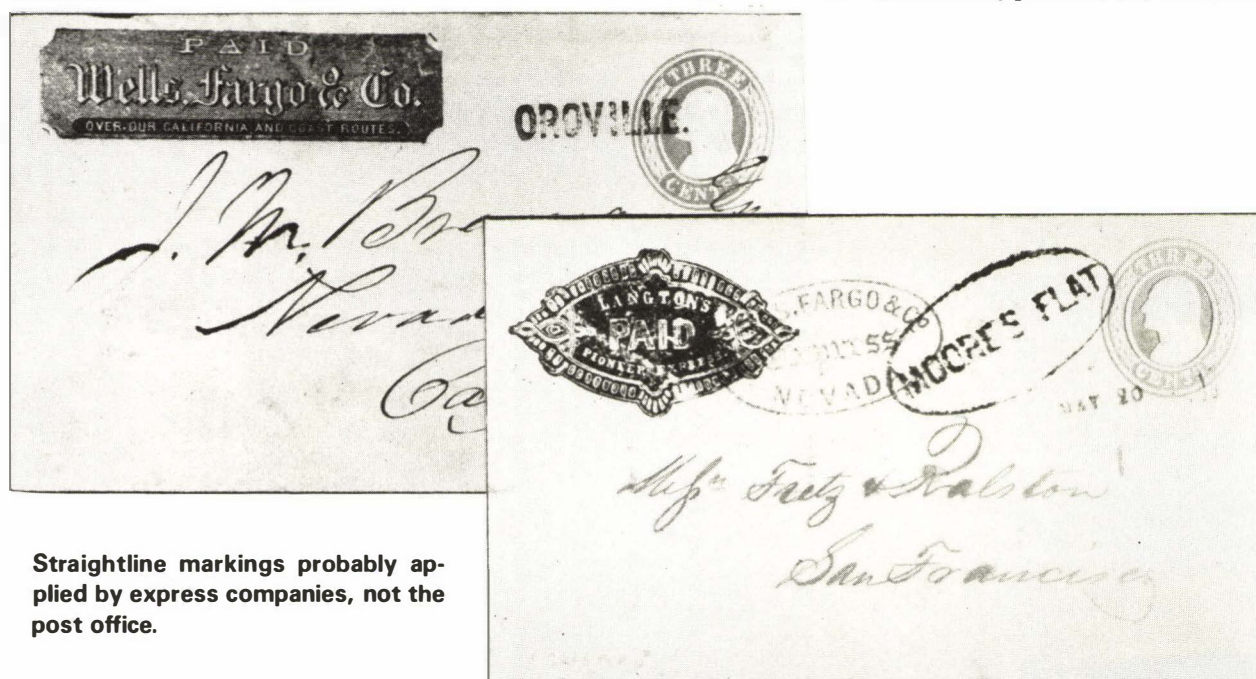 PAID
Wells, Fargo & Co.
OVER OUR CALIFORNIA AND COAST ROUTES.
OROVILLE.
THREE
CENTS
J. M.
LANGTON'S
PAID
PIONEER EXPRESS
S. FARGO & Co
NEVAD
MOORE'S FLAT
THREE
MAY 20
Messrs Fretz & Ralston
San Francisco
Straightline markings probably ap-
plied by express companies, not the
post office.